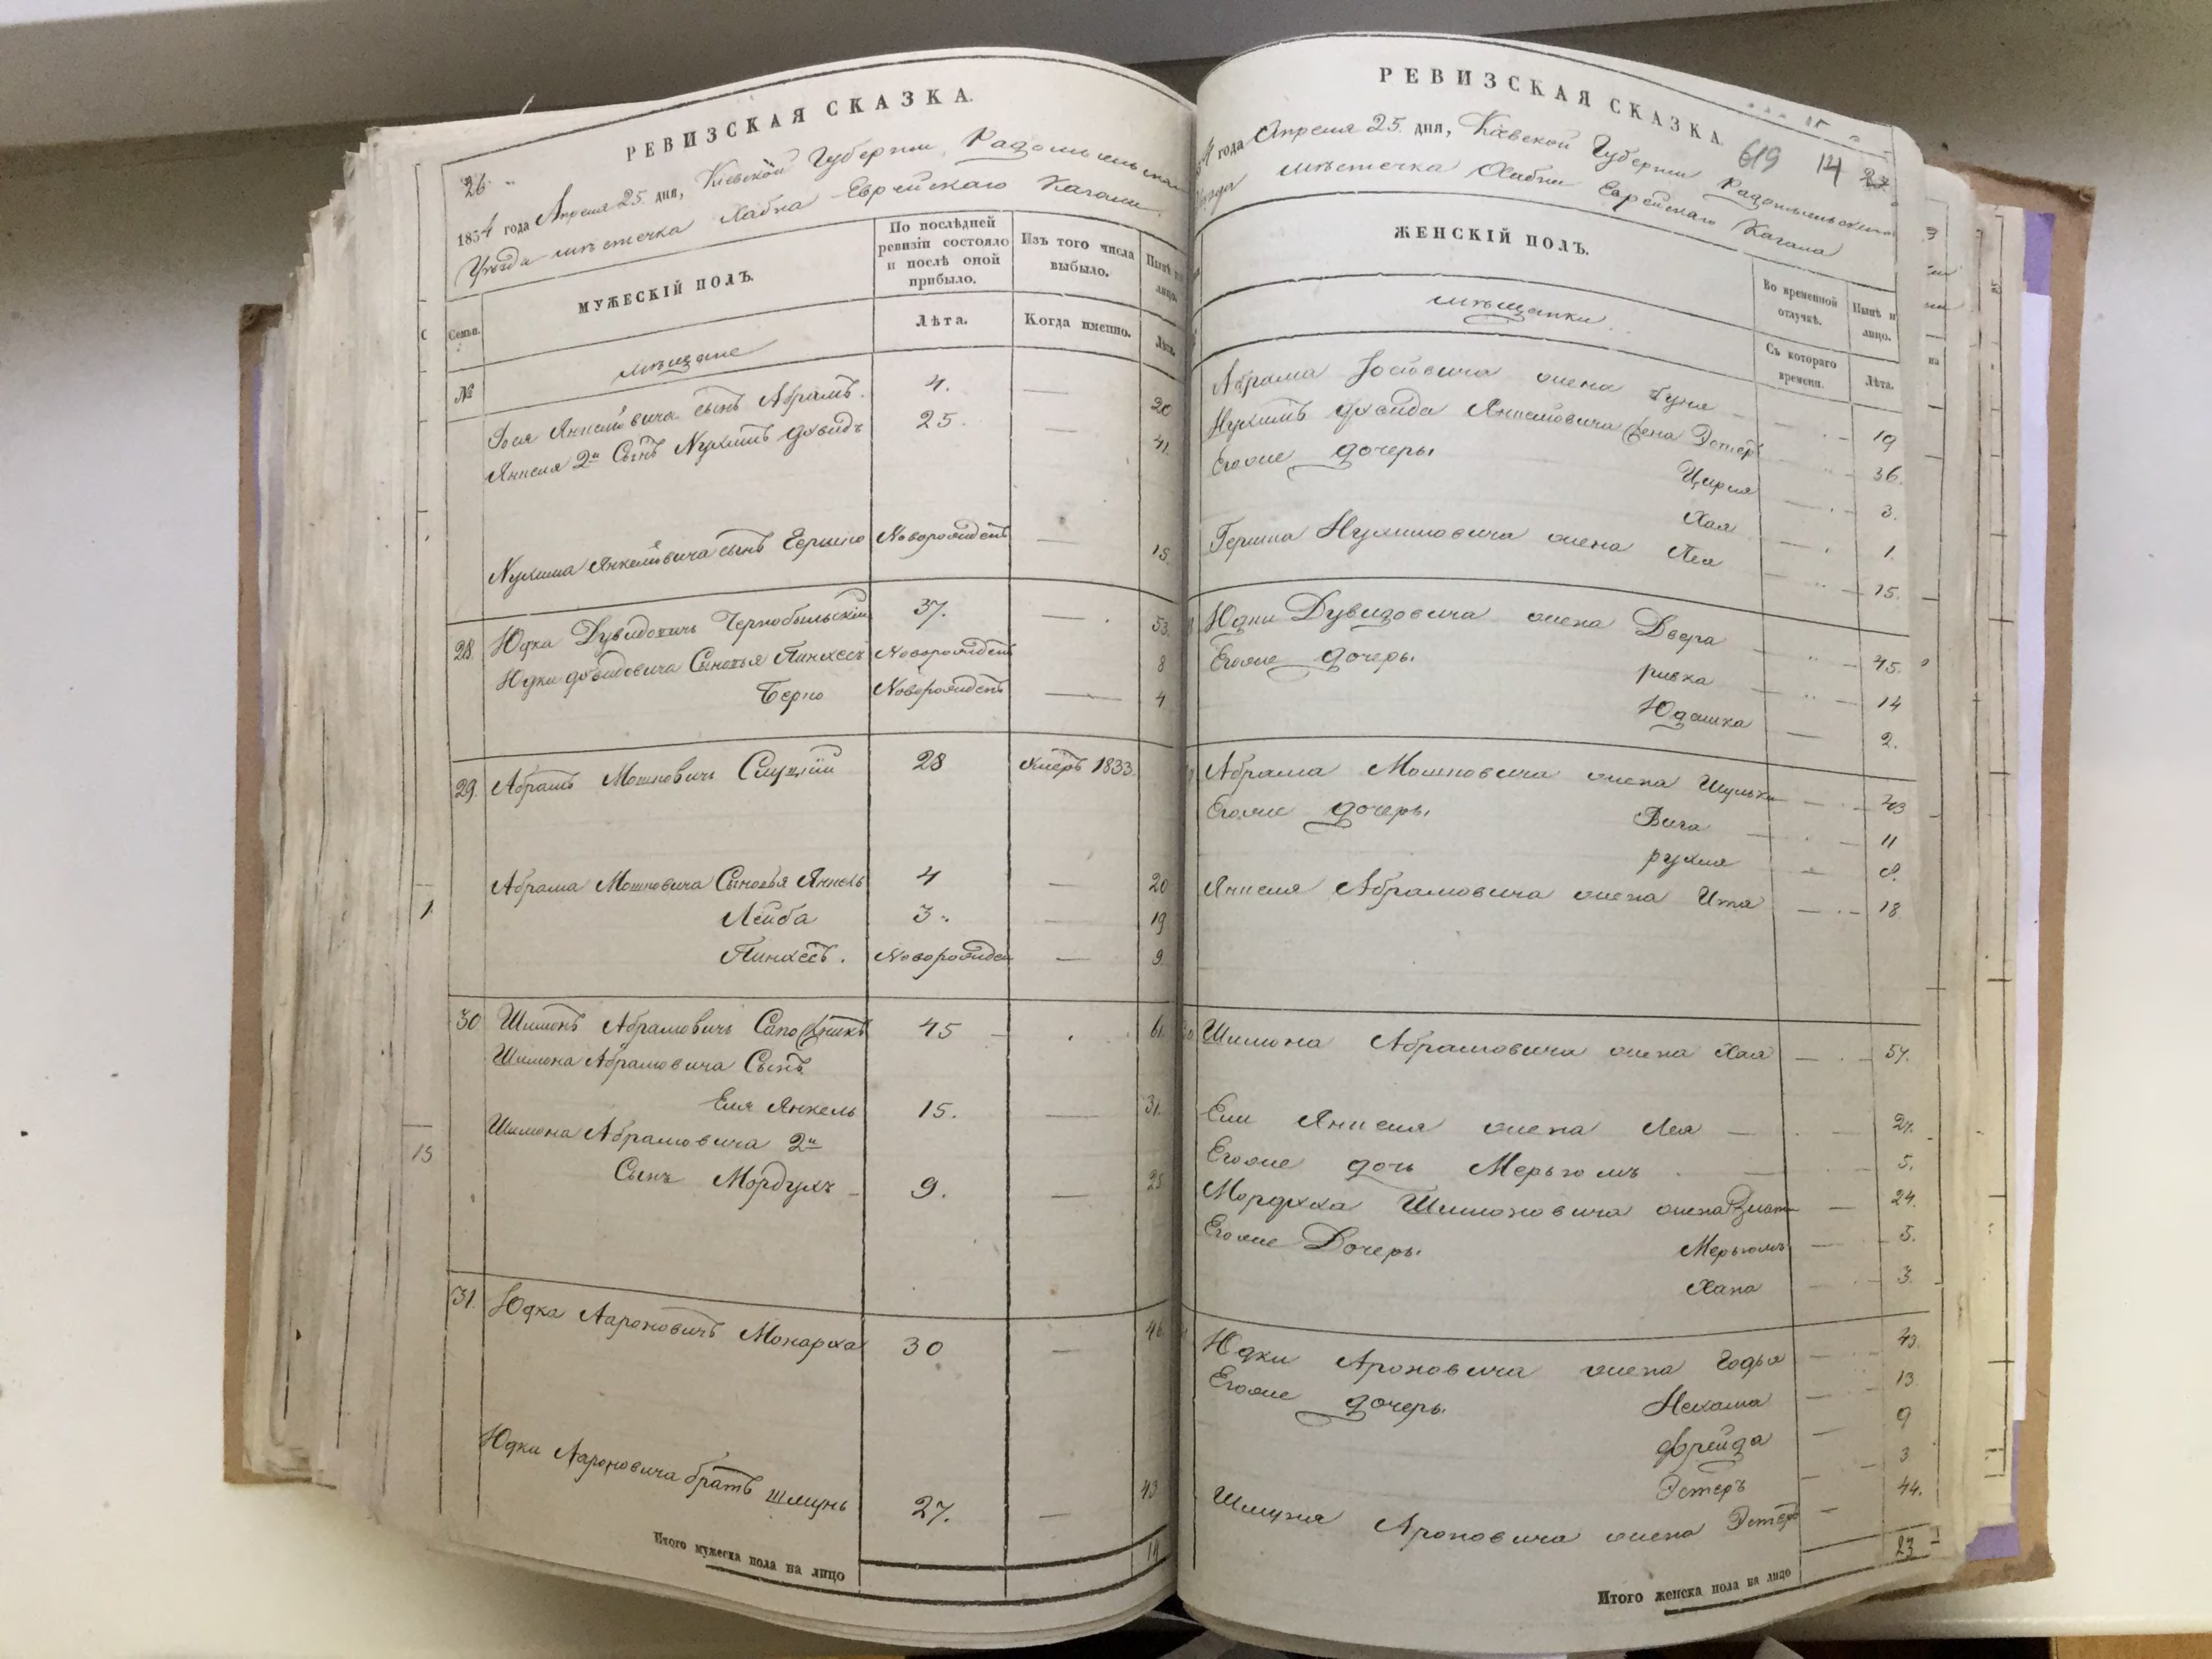 26
РЕВИЗСКАЯ СКАЗКА.
1854 года Апреля 25. дня, Кіевской Губерніи Радомысльскаго
Уезда мѣстечка Хабна Еврейскаго Кагала.
Семьи.
МУЖЕСКІЙ ПОЛЪ.
По послѣдней ревизіи состояло и послѣ оной прибыло.
Изъ того числа выбыло.
Нынѣ на лицо.
№
мѣщане
Лѣта.
Когда именно.
Лѣта.
Янкелевича сынъ Абрамъ. 4. — 20
Янкеля 2й Сынъ Нухимъ Дувидъ 25. — 41.
Нухима Янкелевича сынъ Гершко Новорожденъ — 15.
28. Юдка Дувидовичъ Чернобыльскій 37. — 53.
Юдки Дувидовича Сыновья Пинхесъ Новорожденъ 8
Берко Новорожденъ — 4
29. Абрамъ Мошковичъ Слуцкій 28 умеръ 1833.
Абрама Мошковича Сыновья Янкель 4 — 20
Лейба 3. — 19
Пинхесъ. Новорожден — 9.
30 Шимонъ Абрамовичъ Сапожникъ 45 — 61.
Шимона Абрамовича Сынъ
Еля Янкель 15. — 31.
Шимона Абрамовича 2й
Сынъ Мордухъ 9. — 25
31. Юдка Аароновичъ Монарха 30 — 46.
Юдки Аароновича братъ Шмунь 27. — 43
Итого мужеска пола на лицо 14
РЕВИЗСКАЯ СКАЗКА.
619 14 27
4 года Апреля 25. дня, Кіевской Губерніи Радомысльскаго
Уезда мѣстечка Хабна Еврейскаго Кагала
ЖЕНСКІЙ ПОЛЪ.
Во временной отлучкѣ.
Нынѣ на лицо.
мѣщанки
Съ котораго времени.
Лѣта.
Абрама Іосьовича жена Буня — 19
Нухимъ Дувида Янкелевича жена Эстеръ 36.
Егоже дочеры Цирля — 3.
Хая — 1.
Гершка Нухимовича жена Лея 15.
Юдки Дувидовича жена Двера — 45.
Егоже дочеры ривка — 14
Юдашка — 2.
Абрама Мошковича жена Шулька — 43
Егоже дочеры Вига — 11
рухля — 8.
Янкеля Абрамовича жена Ита — 18
Шимона Абрамовича жена Хая — 57.
Ели Янкеля жена Лея — 27.
Егоже дочь Мерьюмъ — 5.
Мордуха Шимоновича жена Злата — 24.
Егоже Дочеры Мерьюмъ — 5.
Хана — 3.
Юдки Ароновича жена Годья — 43.
Егоже дочеры Нехама — 13
Фрейда — 9
Эстеръ — 3
Шмуня Ароновича жена Эстеръ — 44.
Итого женска пола на лицо 23